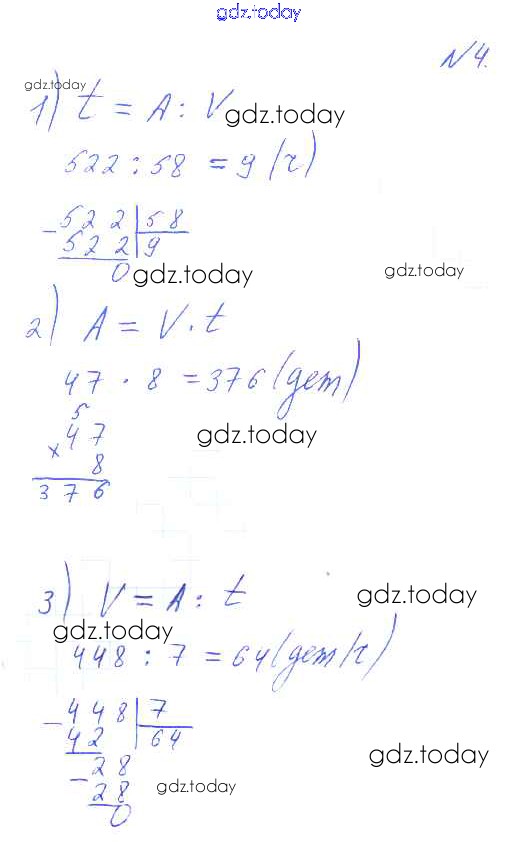 gdz.today
№4.
gdz.today
1) t = A : V gdz.today
522 : 58 = 9 (г)
- 522 | 58
522 | 9
0 gdz.today
gdz.today
2) A = V · t
47 · 8 = 376 (дет)
5
× 47 gdz.today
8
376
3) V = A : t gdz.today
gdz.today
448 : 7 = 64 (дет/г)
- 448 | 7
42 | 64
- 28 gdz.today
28 gdz.today
0